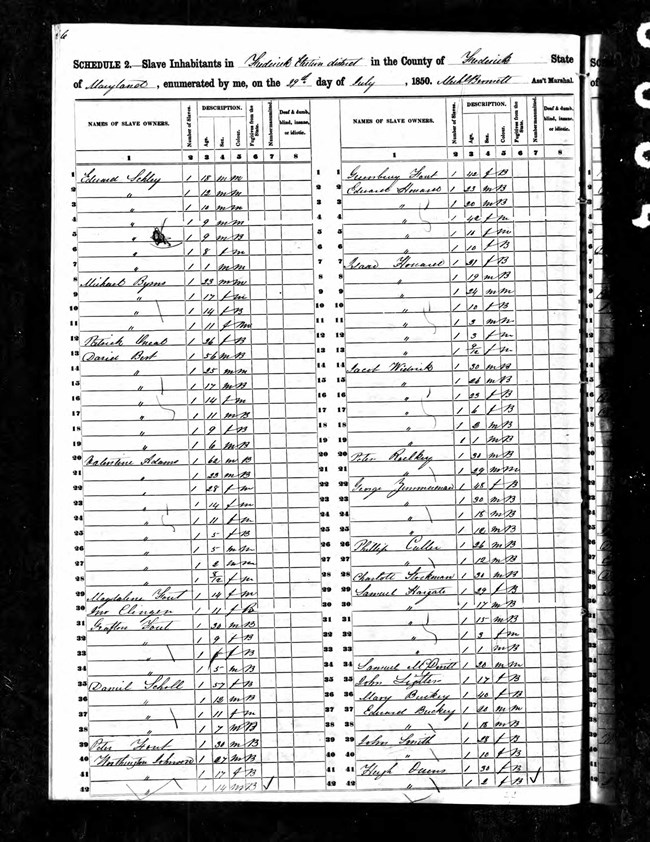 SCHEDULE 2.—Slave Inhabitants in Frederick Election district in the County of Frederick State
of Maryland, enumerated by me, on the 29th day of July, 1850. Bennett Ass't Marshal.
NAMES OF SLAVE OWNERS. Number of Slaves. DESCRIPTION. Age. Sex. Colour. Fugitives from the State. Number manumitted. Deaf & dumb, blind, insane, or idiotic.
1 2 3 4 5 6 7 8
1 Edward Schley 1 18 m m
2 " 1 12 m m
3 " 1 10 m m
4 " 1 9 m m
5 " 1 9 m B
6 " 1 8 f m
7 " 1 1 m m
8 Michael Byrns 1 23 m m
9 " 1 17 f m
10 " 1 14 f B
11 " 1 11 f m
12 Patrick Oneal 1 26 f B
13 David Best 1 56 m B
14 " 1 25 m m
15 " 1 17 m B
16 " 1 14 f m
17 " 1 11 m B
18 " 1 9 f B
19 " 1 6 m B
20 Valentine Adams 1 62 m B
21 " 1 23 m B
22 " 1 28 f m
23 " 1 14 f m
24 " 1 11 f m
25 " 1 5 f B
26 " 1 5 m m
27 " 1 2 m m
28 " 1 8/12 f m
29 Magdalena Fout 1 14 f m
30 Jno Clingan 1 11 f B
31 Grafton Fout 1 30 m B
32 " 1 9 f B
33 " 1 f B
34 " 1 5 m B
35 Daniel Scholl 1 57 f B
36 " 1 13 m B
37 " 1 11 f m
38 " 1 7 m B
39 Peter Fout 1 30 m B
40 Worthington Johnson 1 27 m B
41 " 1 17 f B
42 " 1 14 m B
NAMES OF SLAVE OWNERS. Number of Slaves. DESCRIPTION. Age. Sex. Colour. Fugitives from the State. Number manumitted. Deaf & dumb, blind, insane, or idiotic.
1 2 3 4 5 6 7 8
1 Greenbury Fout 1 40 f B
2 Edward Howard 1 23 m B
3 " 1 20 m B
4 " 1 42 f m
5 " 1 18 f m
6 " 1 10 f B
7 Isaac Howard 1 31 f B
8 " 1 19 m B
9 " 1 24 m m
10 " 1 10 f B
11 " 1 3 m m
12 " 1 3 f m
13 " 1 9/12 f m
14 Jacob 1 30 m B
15 " 1 26 m B
16 " 1 23 f B
17 " 1 6 f B
18 " 1 2 m B
19 " 1 1 m B
20 Peter 1 30 m B
21 " 1 29 m m
22 George Zimmerman 1 48 f B
23 " 1 30 m B
24 " 1 18 m B
25 " 1 12 m B
26 Phillip Culler 1 26 m B
27 " 1 12 m B
28 Charlott Stockman 1 30 m B
29 Samuel Hargate 1 29 f B
30 " 1 17 m B
31 " 1 15 m B
32 " 1 3 f m
33 " 1 1 m B
34 Samuel 1 30 m m
35 John 1 17 f B
36 Mary Buckey 1 40 f B
37 Edward Buckey 1 20 m m
38 " 1 18 m B
39 John Smith 1 28 f B
40 " 1 10 f B
41 Hugh Owens 1 30 f B
42 " 1 2 f B